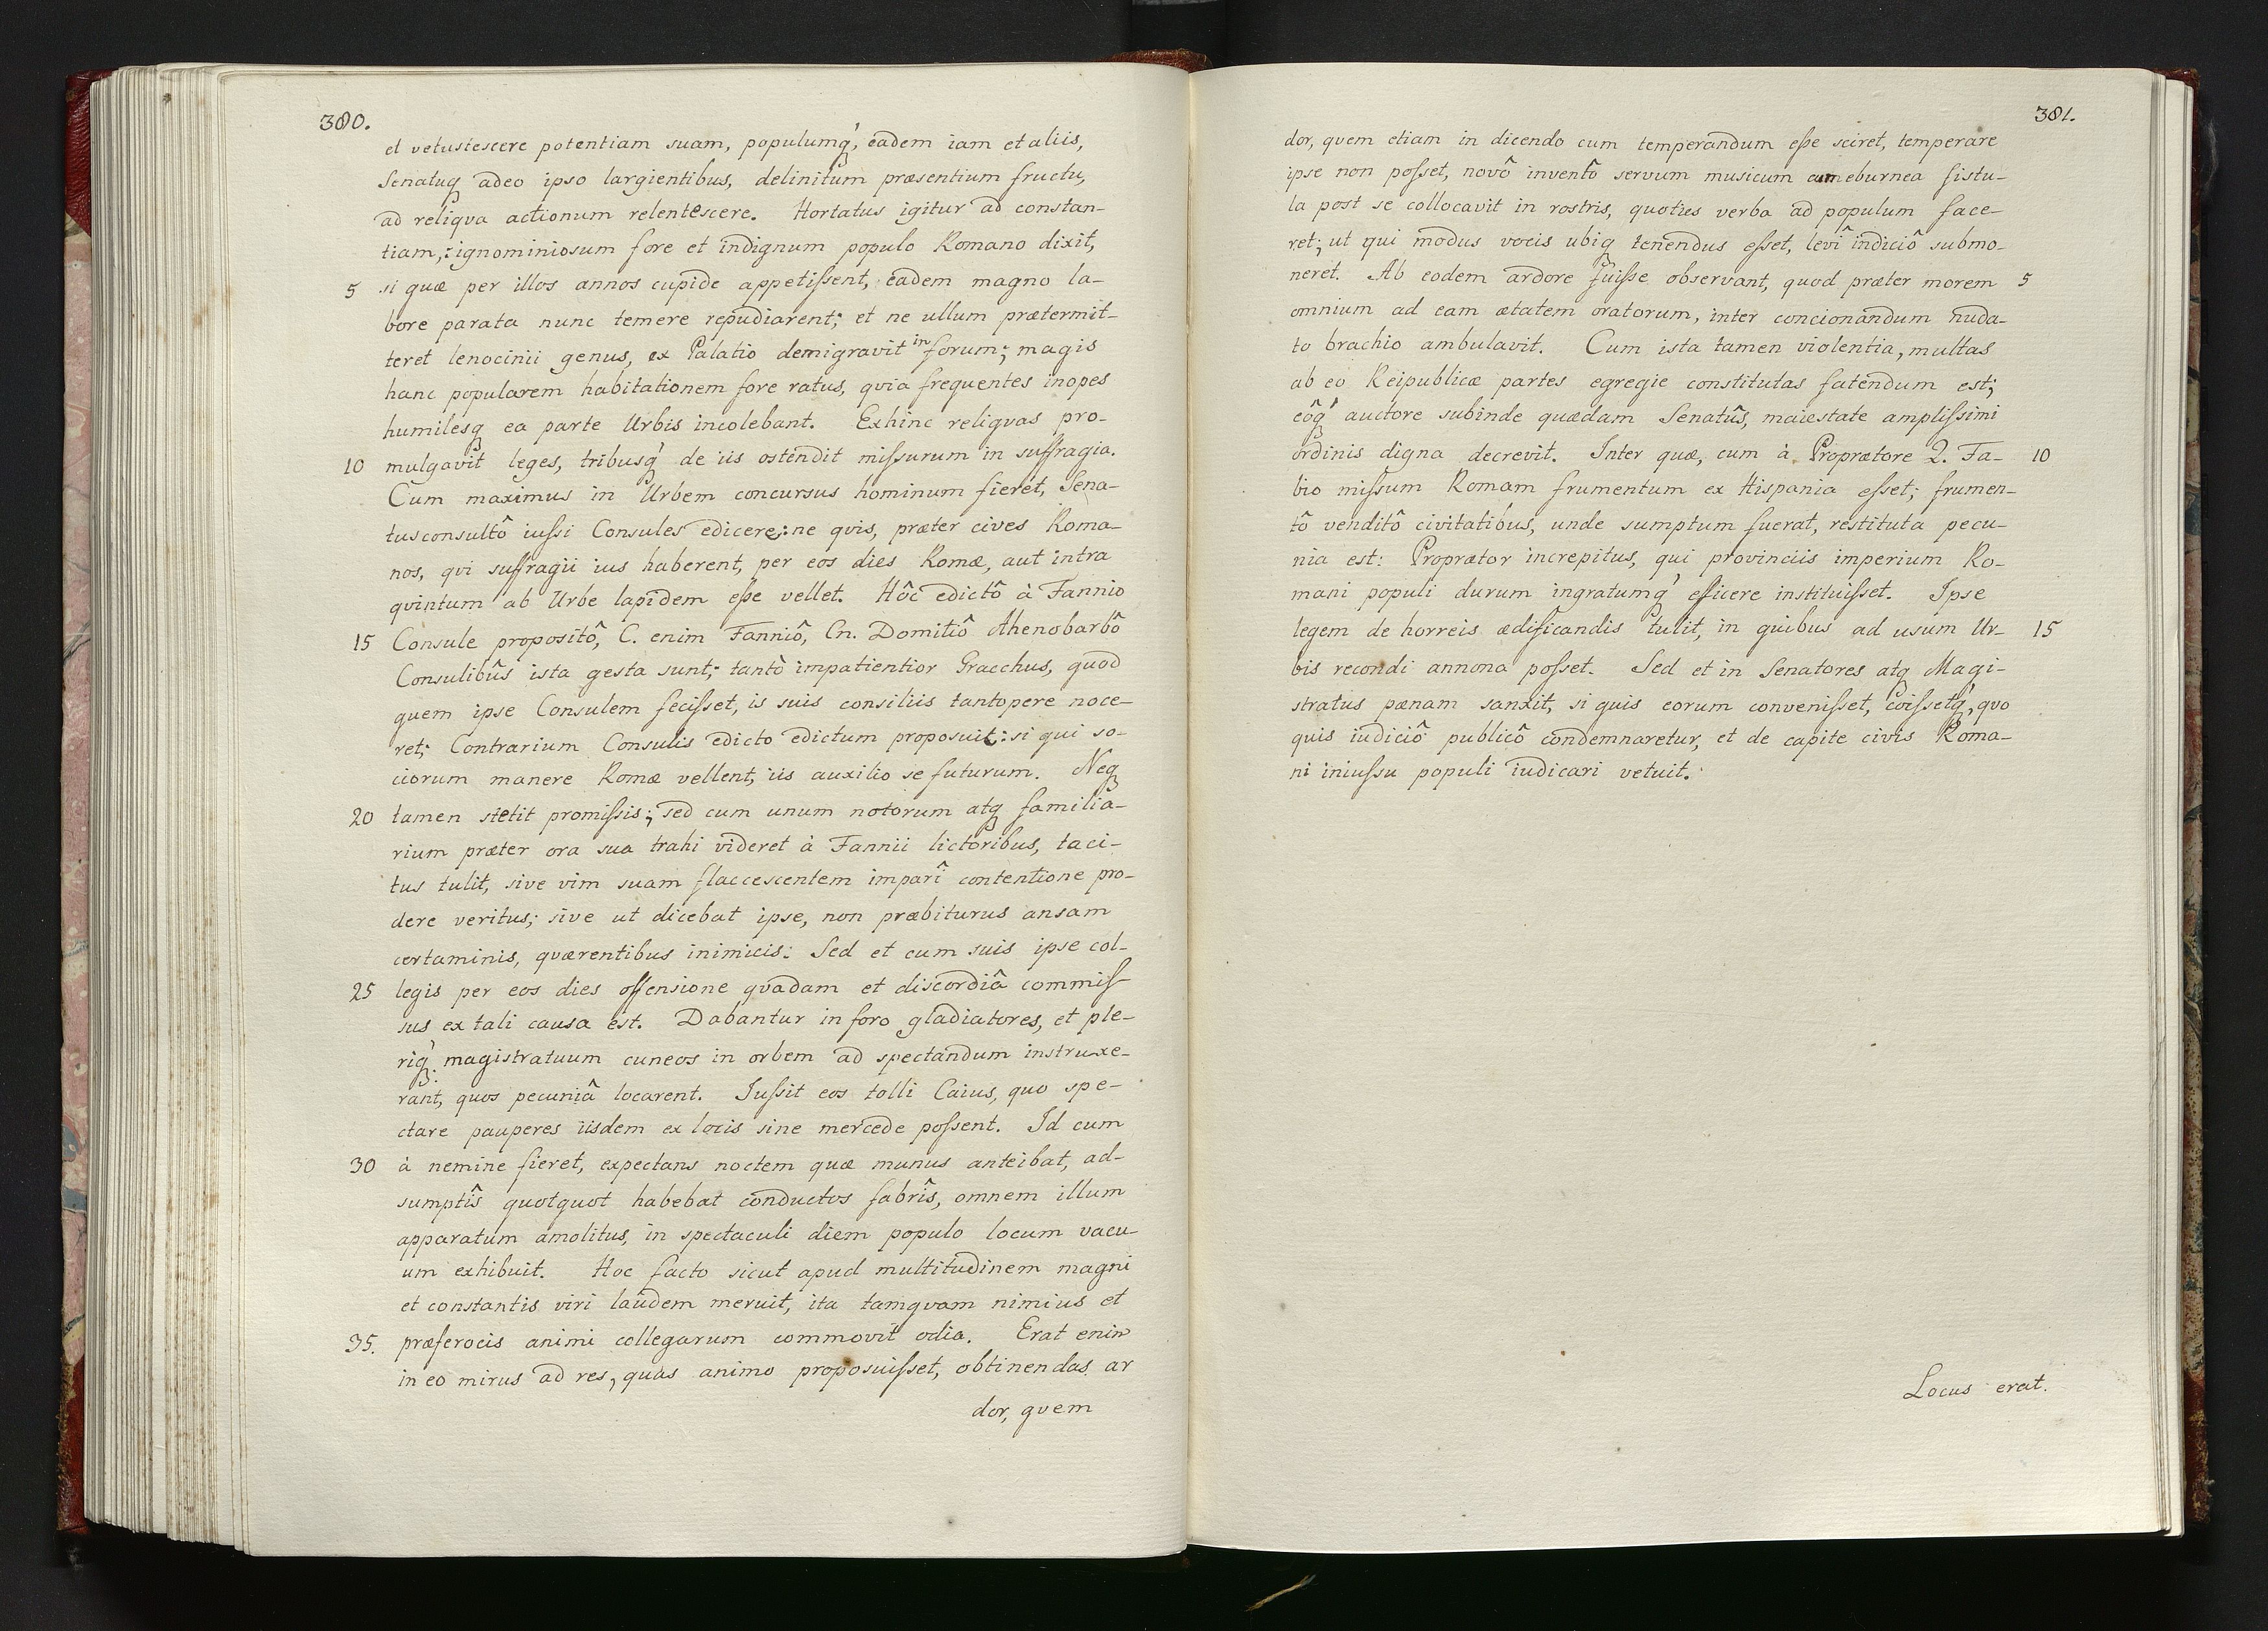 380.
et vetustescere potentiam suam, populumq́, eadem iam et aliis,
Senatuq adeo ipso largientibus, delinitum præsentium fructu,
ad reliqva actionum relentescere. Hortatus igitur ad constan-
tiam,: ignominiosum fore et indignum populo Romano dixit,
5 si quæ per illos annos cupide appetiſsent, eadem magno la-
bore parata nunc temere repudiarent; et ne ullum prætermit-
teret lenocinii genus, ex Palatio demigravit in forum; magis
hanc popularem habitationem fore ratus, qvia frequentes inopes
humilesq ea parte Urbis incolebant. Exhinc reliqvas pro-
10 mulgavit leges, tribusq́ de iis ostendit miſsurum in suffragia.
Cum maximus in Urbem concursus hominum fieret, Sena-
tusconsultô iuſsi Consules edicere: ne qvis, præter cives Roma-
nos, qvi suffragii ius haberent, per eos dies Romæ, aut intra
qvintum ab Urbe lapidem eſse vellet. Hôc edictô à Fannio
15 Consule propositô, C. enim Fanniô, Cn. Domitiô Ahenobarbô
Consulibûs ista gesta sunt; tantò impatientior Gracchus, quod
quem ipse Consulem feciſset, is suis consiliis tantopere noce-
ret; Contrarium Consulis edicto edictum proposuit: si qui so-
ciorum manere Romæ vellent, iis auxilio se futurum. Neq
20 tamen stetit promiſsis; sed cum unum notorum atq familia-
rium præter ora sua trahi videret à Fannii lictoribus, taci-
tus tulit, sive vim suam flaccescentem imparî contentione pro-
dere veritus; sive ut dicebat ipse, non præbiturus ansam
certaminis, qværentibus inimicis: Sed et cum suis ipse col-
25 legis per eos dies offensione qvadam et discordiâ commiſ-
sus ex tali causa est. Dabantur in foro gladiatores, et ple-
riq́: magistratuum cuneos in orbem ad spectandum instruxe-
rant, quos pecuniâ locarent. Iuſsit eos tolli Caius, quo spe-
ctare pauperes iisdem ex locis sine mercede poſsent. Id cum
30 à nemine fieret, expectans noctem quæ munus anteibat, ad-
sumptîs quotquot habebat conductos fabrîs, omnem illum
apparatum amolitus, in spectaculi diem populo locum vacu-
um exhibuit. Hoc facto sicut apud multitudinem magni
et constantis viri laudem meruit, ita tamqvam nimius et
35. præferocis animi collegarum commovit odia. Erat enim
in eo mirus ad res, quas animo proposuiſset, obtinendas ar
dor, qvem
381.
dor, qvem etiam in dicendo cum temperandum eſse sciret, temperare
ipse non poſset, novô inventô servum musicum cum eburnea fistu-
la post se collocavit in rostris, quoties verba ad populum face-
ret; ut qui modus vocis ubiq tenendus eſset, levî indiciô submo-
neret. Ab eodem ardore fuiſse observant, quod præter morem 5
omnium ad eam ætatem oratorum, inter concionandum nuda-
to brachio ambulavit. Cum ista tamen violentia, multas
ab eo Reipublicæ partes egregie constitutas fatendum est;
eôq́ auctore subinde quædam Senatûs, maiestate ampliſsimi
ordinis digna decrevit. Inter quæ, cum à Proprætore Q. Fa- 10
bio miſsum Romam frumentum ex Hispania eſset; frumen-
tô venditô civitatibus, unde sumptum fuerat, restituta pecu-
nia est: Proprætor increpitus, qui provinciis imperium Ro-
mani populi durum ingratumq́ efficere instituiſset. Ipse
legem de horreis ædificandis tulit, in quibus ad usum Ur- 15
bis recondi annona poſset. Sed et in Senatores atq Magi-
stratus pænam sanxit, si quis eorum conveniſset, coiſsetq́, qvo
quis iudiciô publicô condemnaretur, et de capite civis Roma-
ni iniuſsu populi iudicari vetuit.
Locus erat.